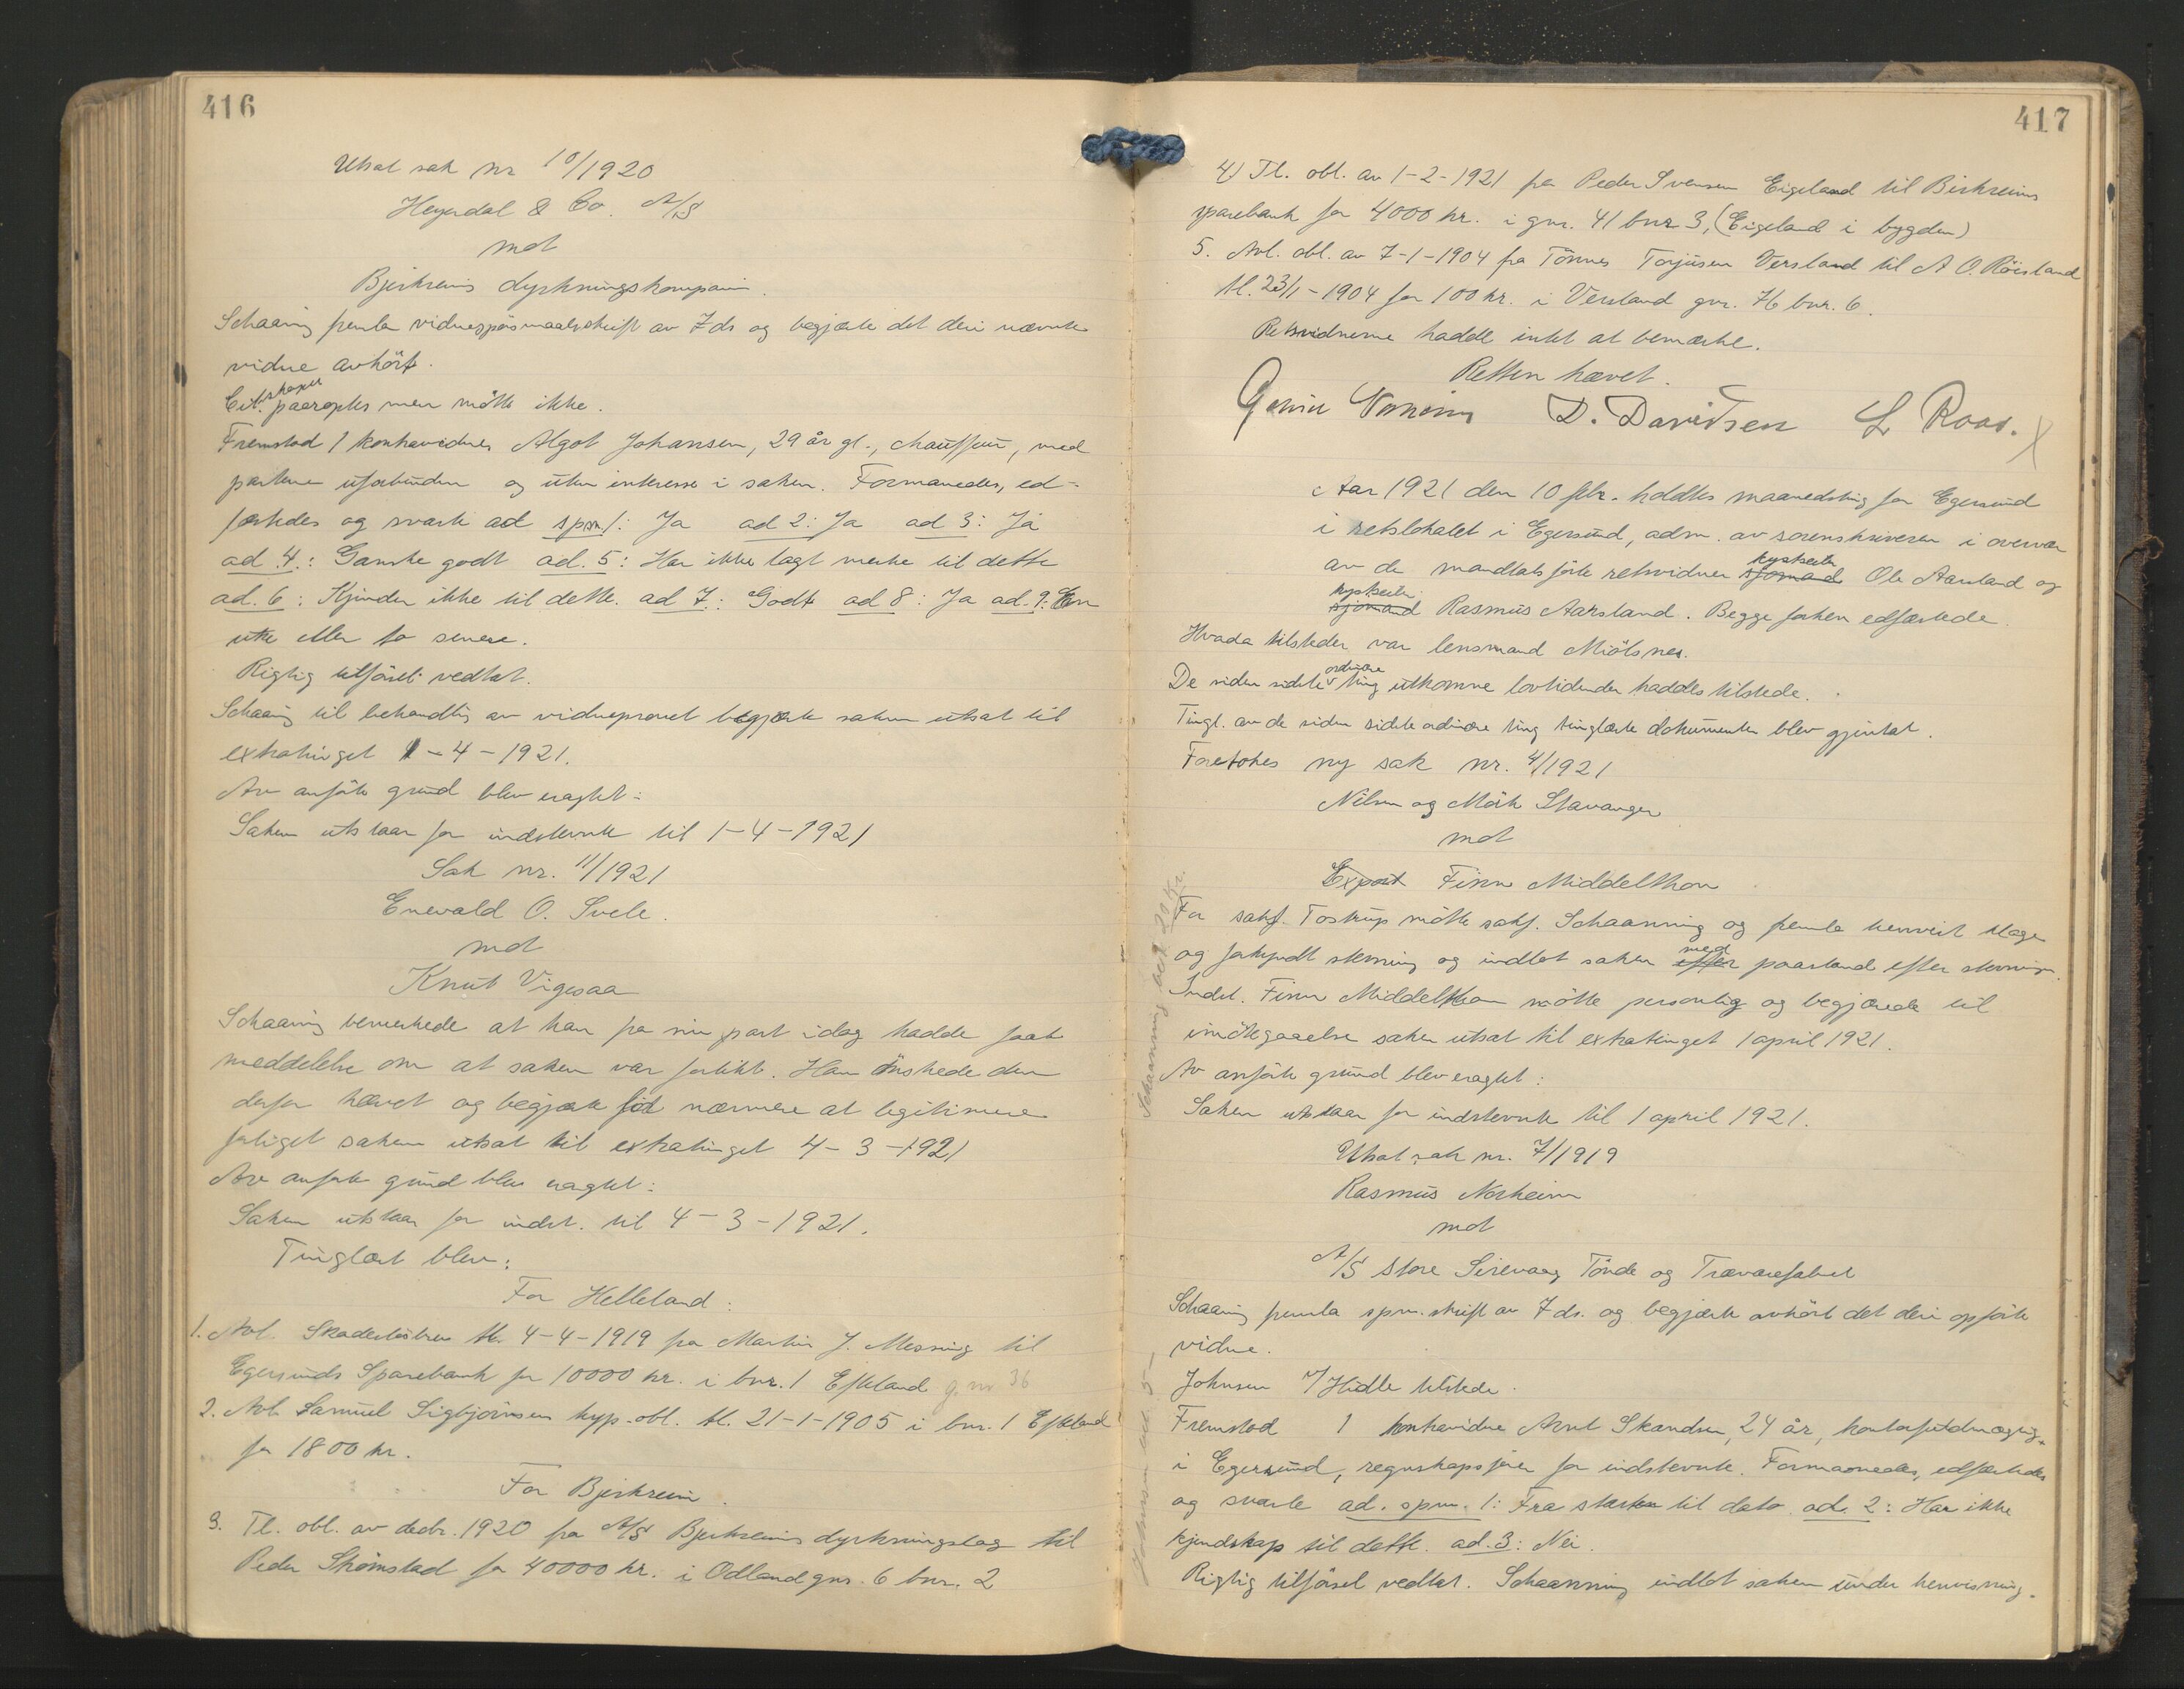 416
Utsat sak nr 10/1920
Heyerdal & Co. A/S
mot
Bjerkreims dyrkningskompani.
Schaaning fremla vidnespörsmaalsskrift av 7 ds og begjærte det deri nævnte
vidne avhört.
Cit. paaroptes men mötte ikke.
Fremstod 1 kontravidnes Algot Johansen, 29 år gl., chauffeur, med
parterne uforbunden og uten interesse i saken. Formanedes, ed-
fæstedes og svarte ad spm 1: Ja ad 2: Ja ad 3: Ja
ad 4.: Ganske godt ad. 5: Har ikke lagt merke til dette
ad. 6: Kjender ikke til dette. ad 7: Godt ad 8: Ja ad. 9: En
uke eller to senere.
Rigtig tilförsel vedtat.
Schaaning til behandling av vidneprovet begjærte saken utsat til
extratinget 1-4-1921.
Av anförte grund blev eragtet:
Saken utstaar for indstevnte til 1-4-1921
Sak nr. 11/1921
Enevald O. Svele.
mot
Knut Vigesaa
Schaaning bemerkede at han fra sin part idag hadde faat
meddelelse om at saken var forlikt. Han önskede den
derfor hævet og begjærte for nærmere at legitimere
forliget saken utsat til extratinget 4-3-1921
Av anförte grund blev eragtet:
Saken utstaar for indst. til 4-3-1921.
Tinglæst blev:
For Helleland:
1. Avl. Skadeslösbrev tl. 4-4-1919 fra Martin J. Messing til
Egersunds Sparebank for 10000 kr. i bnr. 1 Efteland g. nr 36
2. Avl. Samuel Sigbjörnsens hyp. obl. tl. 21-1-1905 i bnr. 1 Efteland
for 1800 kr.
For Bjerkreim.
3. Tl. obl. av decbr. 1920 fra A/S Bjerkreims dyrkningslag til
Peder Strömstad for 40000 kr. i Odland gnr. 6 bnr. 2
417
4) Tl. obl. av 1-2-1921 fra Peder Svensen Eigeland til Birkreims
sparebank for 4000 kr. i gnr. 41 bnr 3, (Eigeland i bygden)
5. Avl. obl. av 7-1-1904 fra Tönnes Torjusen Versland til A O. Röisland
tl. 23/1-1904 for 100 kr. i Versland gnr. 76 bnr. 6.
Retsvidnerne hadde intet at bemærke.
Retten hævet.
D. Davidsen L Roas.
Aar 1921 den 10 febr. holdtes maanedsting for Egersund
i retslokalet i Egersund, adm. av sorenskriveren i overvær
av de mandtalsförte retsvidner sjömand Ole Aarstand og
sjömand Rasmus Aarsland. Begge forhen edfæstede.
Hvada tilsteder var lensmand Mölsnes.
De siden sidste ordinære ting utkomne lovtidender hadtes tilstede.
Tingl. av de siden sidste ordinære ting tinglæste dokumenter blev gjentat.
Foretokes ny sak nr. 4/1921
Nilsen og Mörk Stavanger
mot
Export Finn Middelthon
For sakf. Tostrup mötte sakf. Schaanning og fremla henvist klage
og forkyndt stevning og indlot saken efter med paastand efter stevningen.
Indst. Finn Middelthon mötte personlig og begjærede til
imötegaaelse saken utsat til extratinget 1 april 1921.
Av anförte grund blev eragtet:
Saken utstaar for indstevnte til 1 april 1921.
Utsat sak nr. 7/1919
Rasmus Norheim
mot
A/S Store Sirevaag Tönde og Trævarefabrik
Schaaning fremla spm. skrift av 7 ds. og begjærte avhört det deri opförte
vidne.
Johnsen v/ Hidle tilstede.
Fremstod 1 kontravidne Arnt Skandsen, 24 år, kontorfuldmægtig
i Egersund, regnskapsförer for indstevnte. Formanedes, edfæstedes
og svarte ad. spm. 1: Fra starten til dato. ad. 2: Har ikke
kjendskap til dette. ad. 3: Nei.
Rigtig tilförsel vedtat. Schaanning indlot saken under henvisning-